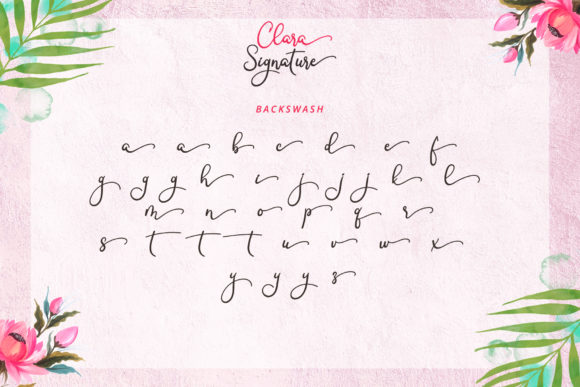 Clara
Signature
BACKSWASH
a a b c d e f
g g g h i j j j k l
m n o p q r
s t t t u v w x
y y y s